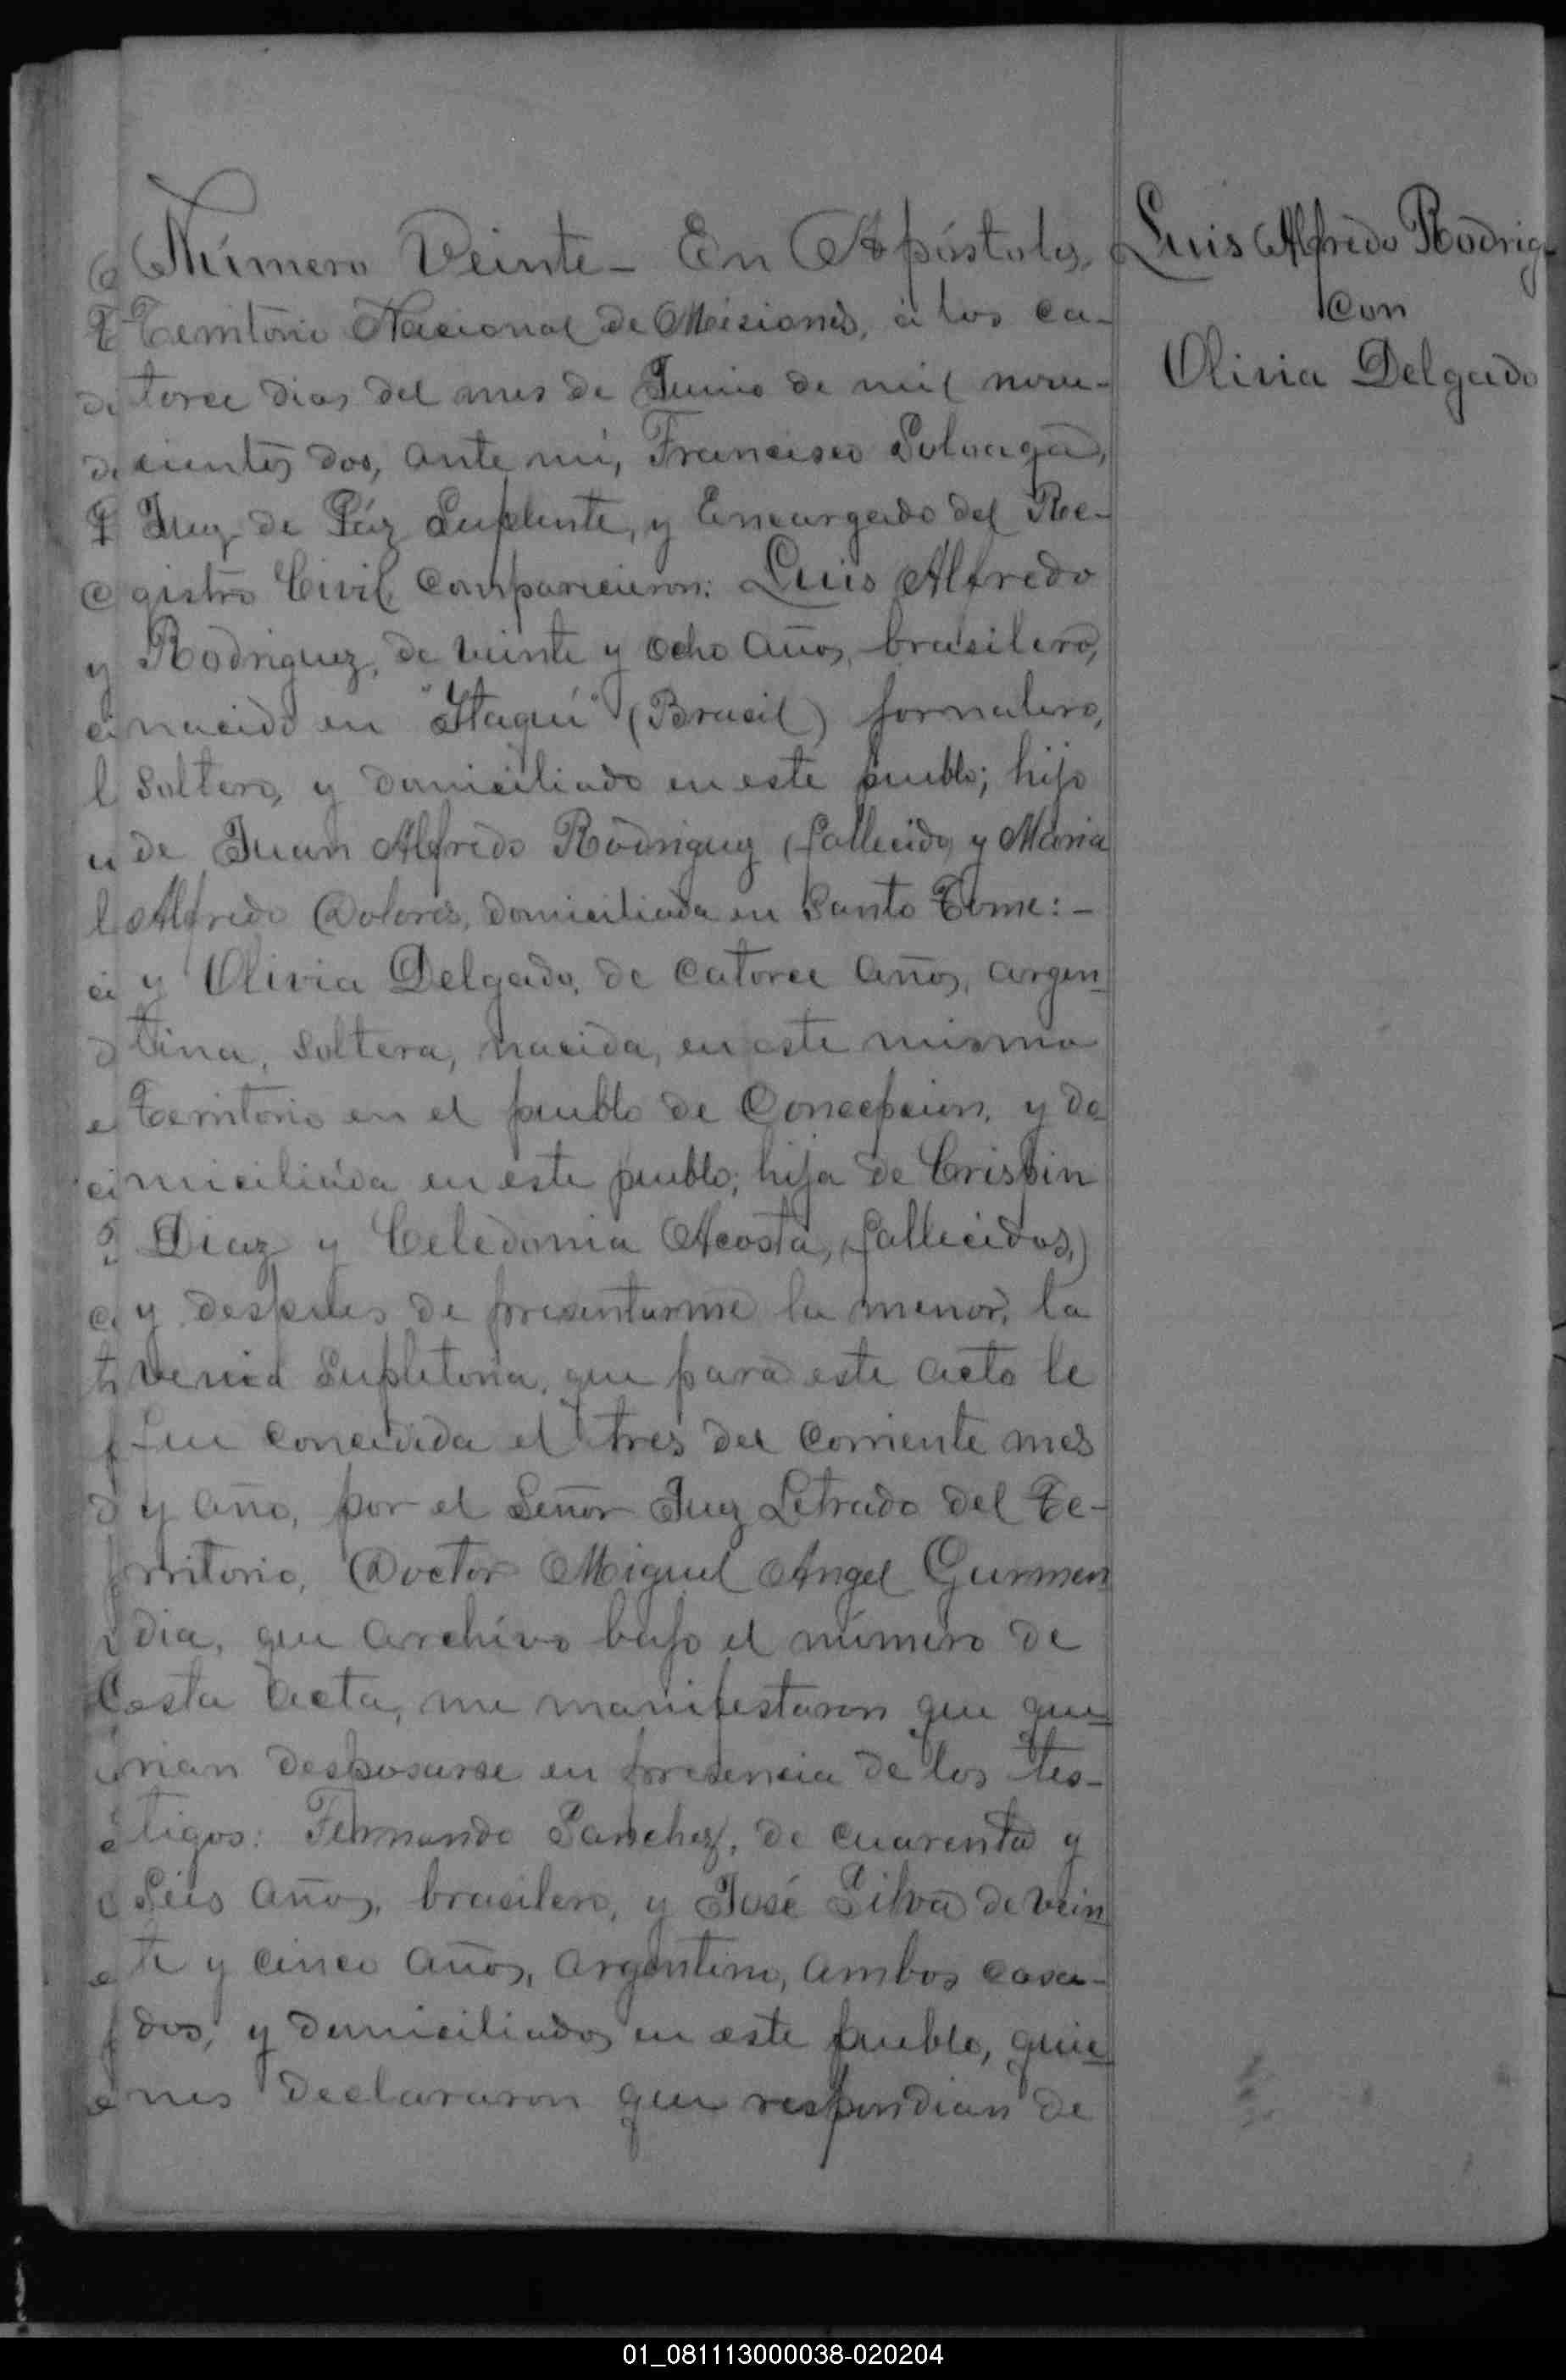 Número Veinte - En Apóstoles,
Territorio Nacional de Misiones, á los ca-
torce dias del mes de Junio de mil nove-
cientos dos, ante mi, Francisco
Juez de Páz Suplente, y Encargado del Re-
gistro Civil comparecieron: Luis Alfredo
Rodriguez, de veinte y ocho años, brasilero,
nacido en "Itaquí" (Brasil) jornalero,
soltero, y domiciliado en este pueblo; hijo
de Juan Alfredo Rodriguez (fallecido) y Maria
Alfredo Dolores, domiciliada en Santo Tome: -
y Olivia Delgado, de catorce años, argen-
tina, soltera, nacida, en este mismo
Territorio en el pueblo de Concepcion, y do-
miciliada en este pueblo; hija de Crispin
Diaz y Celedonia Acosta, (fallecidos,)
y despues de presentarme la menor, la
venia supletoria, que para este acto le
fue concedida el tres del corriente mes
y año, por el Señor Juez Letrado del Te-
rritorio, Doctor Miguel Angel Gurmen
dia, que archivo bajo el número de
esta acta, me manifestaron que que-
rian desposarse en presencia de los tes-
tigos: Fernando Sanchez, de cuarenta y
seis años, brasilero, y José Silva de vein
te y cinco años, argentino, ambos casa-
dos, y domiciliados en este pueblo, quie
nes declararon que respondian de
Luis Alfredo Rodrig-
con
Olivia Delgado
01_081113000038-020204